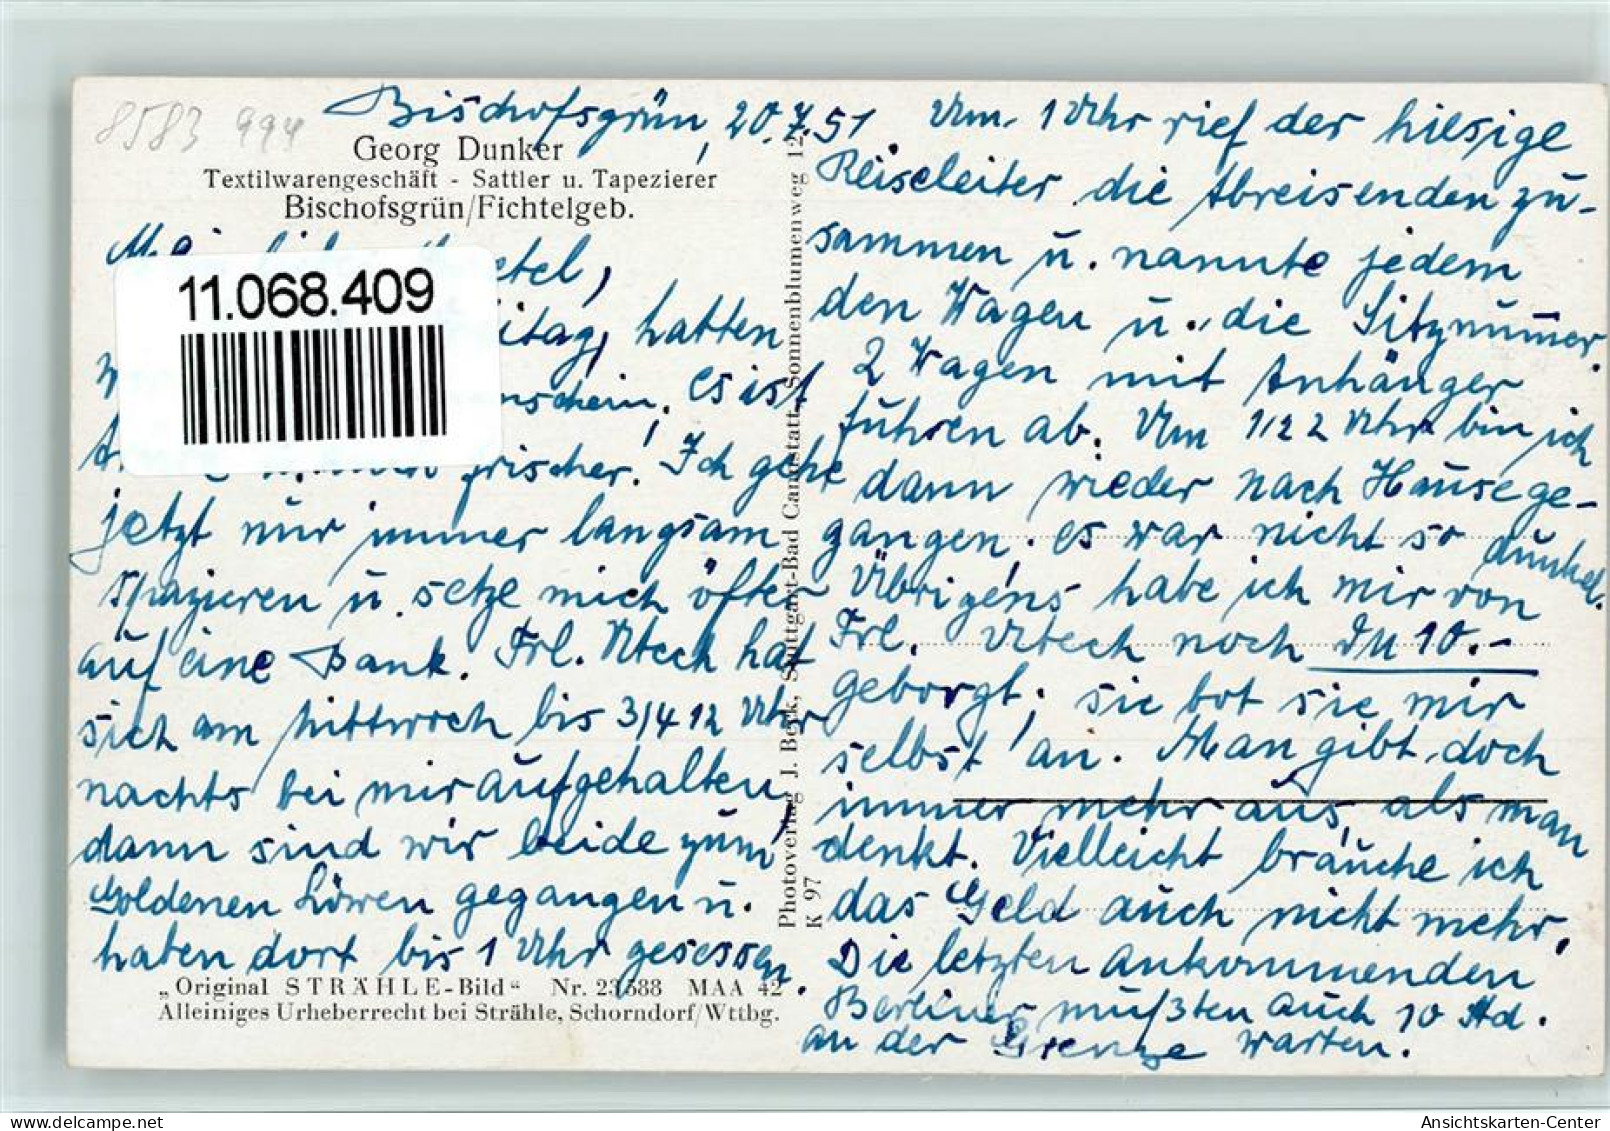 8583 994
Bischofsgrün, 20.7.51
Georg Dunker
Textilwarengeschäft - Sattler u. Tapezierer
Bischofsgrün/Fichtelgeb.
11.068.409
hatten
es ist
frischer. Ich gehe
jetzt nur immer langsam
spazieren u. setze mich öfter
auf eine Bank. Frl. Utech hat
sich am Mittwoch bis 3/4 12 Uhr
nachts bei mir aufgehalten,
dann sind wir beide zum
Goldenen Löwen gegangen u.
haben dort bis 1 Uhr gesessen.
„Original STRÄHLE-Bild“ Nr. 23588 MAA 42
Alleiniges Urheberrecht bei Strähle, Schorndorf/Wttbg.
Photoverlag J. Beck, Stuttgart-Bad Cannstatt, Sonnenblumenweg 12
K 97
Um 1 Uhr rief der hiesige
Reiseleiter die Abreisenden zu-
sammen u. nannte jedem
den Wagen u. die Sitznummer.
2 Wagen mit Anhänger
führen ab. Um 1/2 2 Uhr bin ich
dann wieder nach Hause ge-
gangen, es war nicht so dunkel.
Übrigens habe ich mir von
Frl. Utech noch DM 10.-
geborgt; sie bot sie mir
selbst an. Man gibt doch
immer mehr aus, als man
denkt. Vielleicht brauche ich
das Geld auch nicht mehr.
Die letzten ankommenden
Berliner mußten auch 10 Std.
an der Grenze warten.
Ansichtskarten-Center